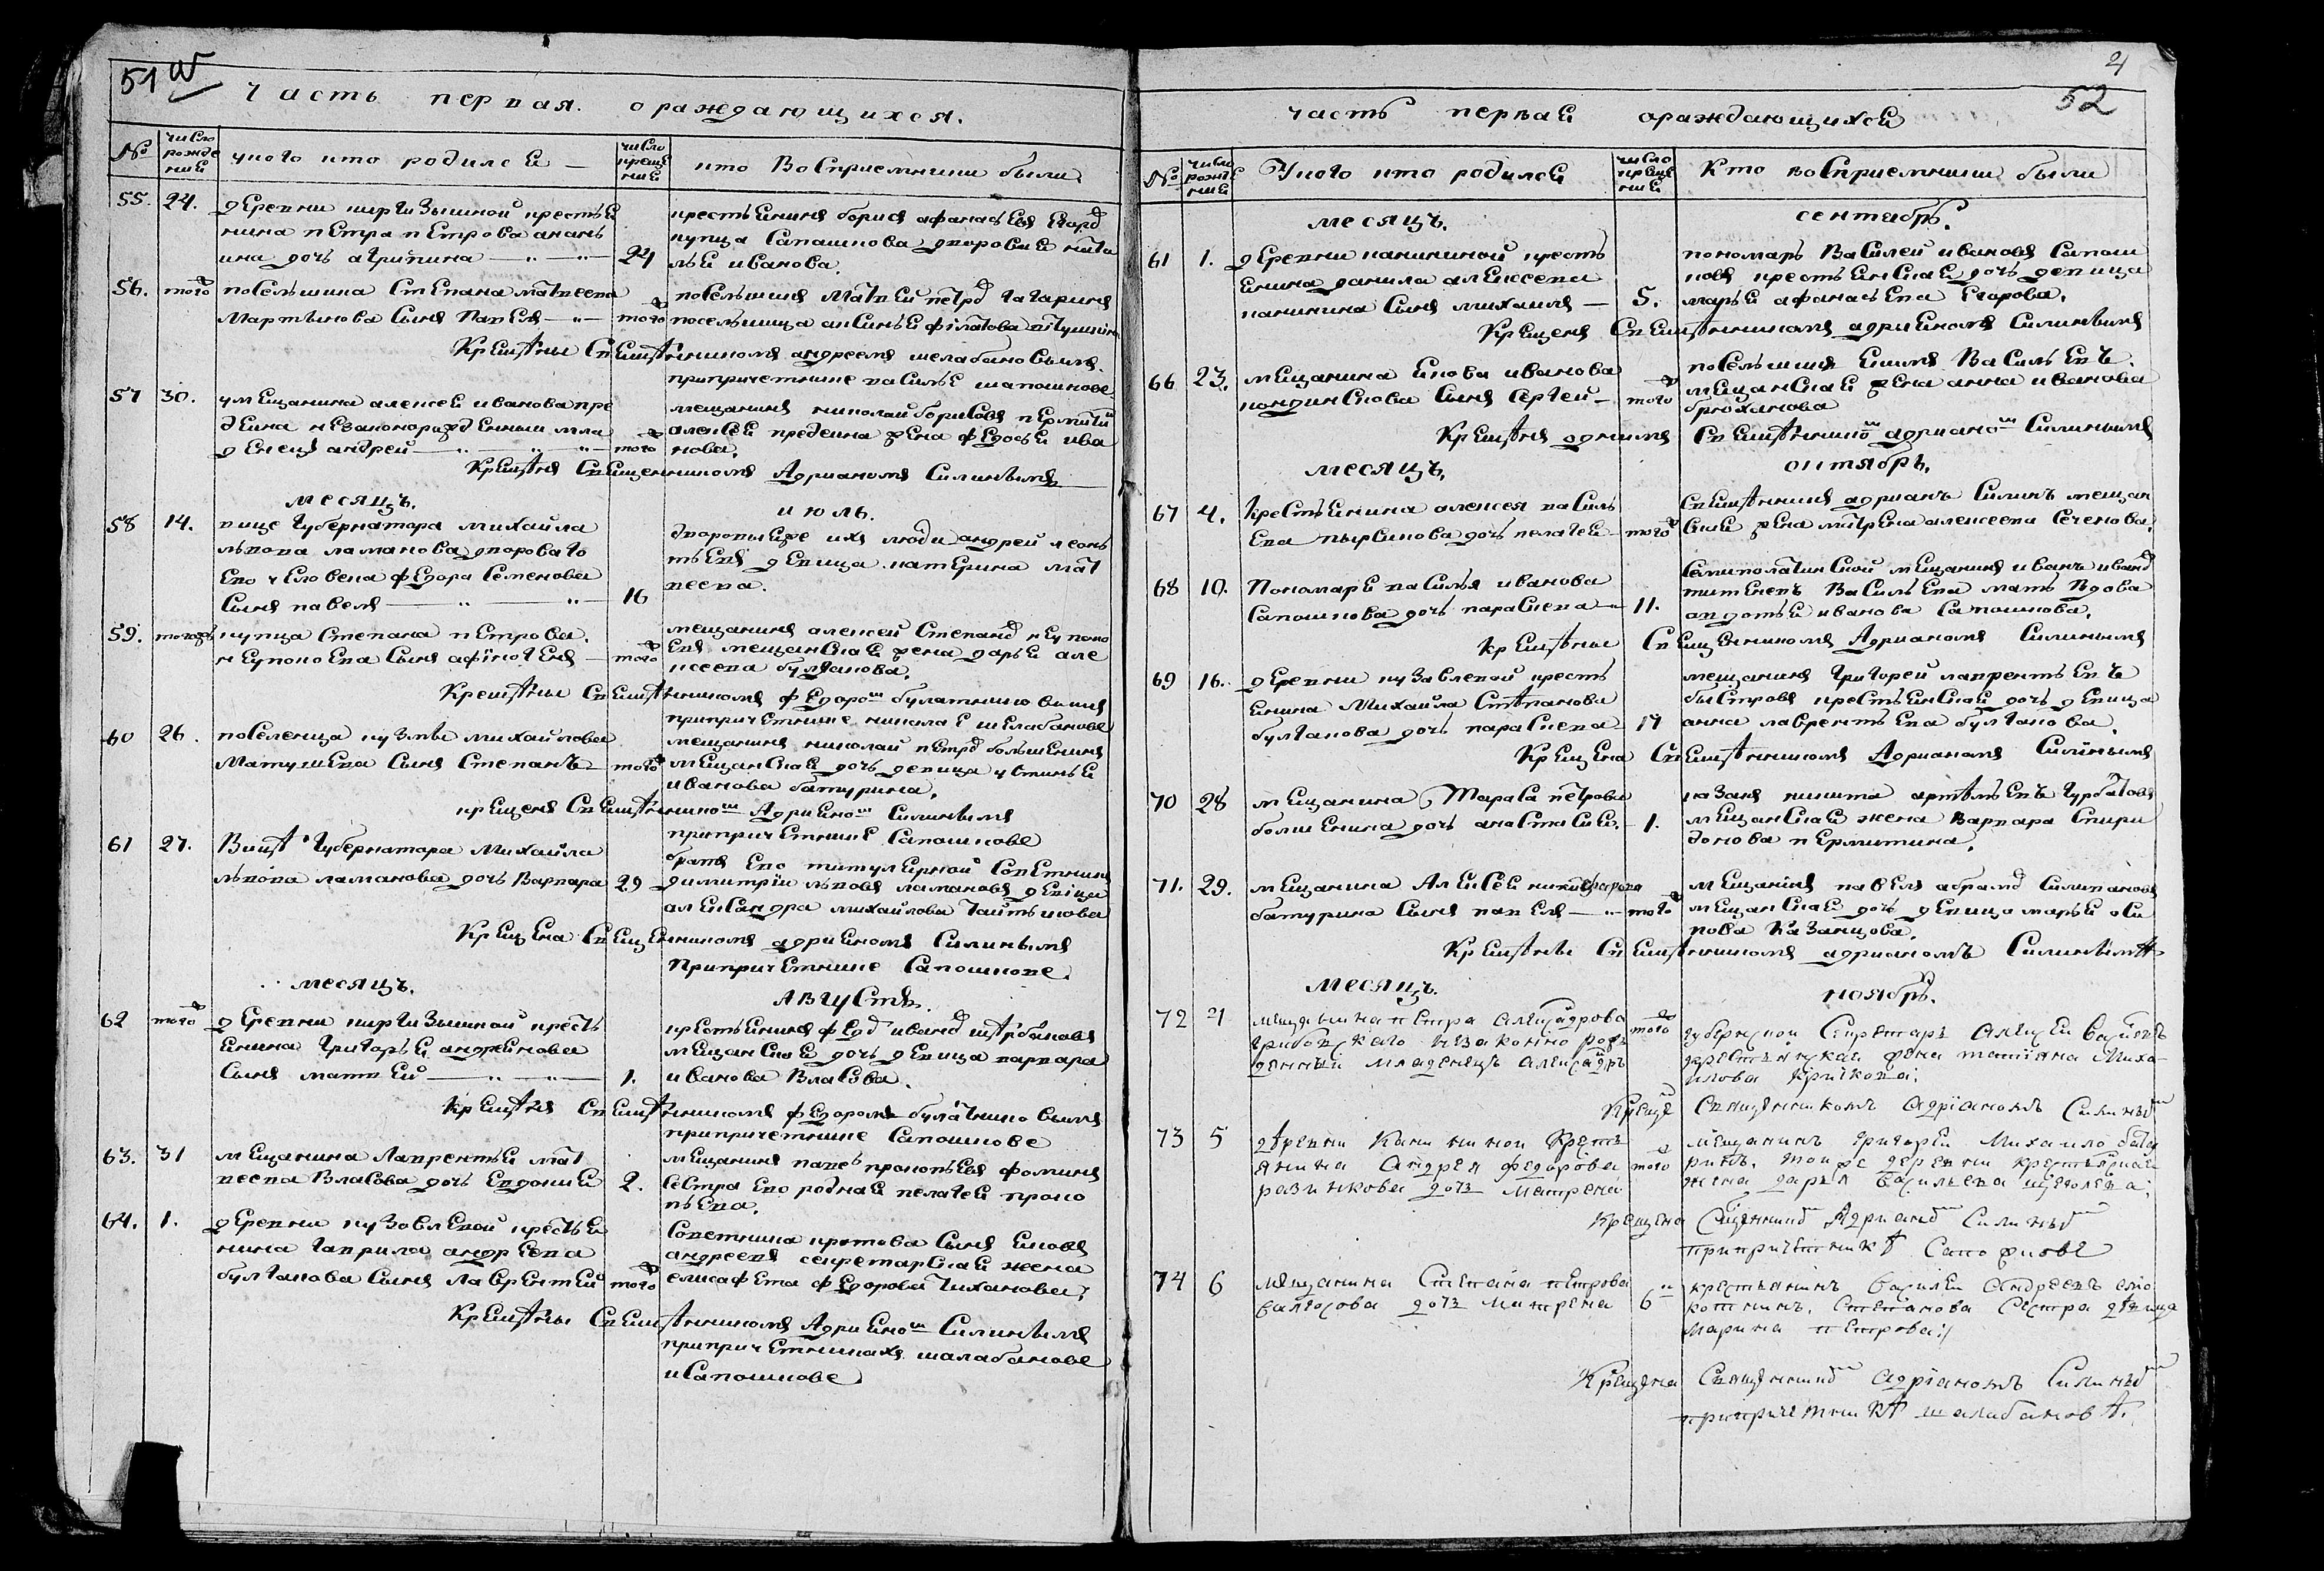 51
часть первая. о раждающихся.
№
число рождения
у кого кто родился
число крещения
кто восприемники были
55. 24. деревни киргизышной крестья
нина петра петрова анань
ина дочь агрипина 24
крестьянинъ борисъ афанасьевъ егоро
купца сапашкова дворовая ната
лья иванова.
56. того поселыщика степана матвеева
мартынова сынъ павелъ того
поселыщикъ матвей петро гагаринъ
поселыщица аксинья филатова
крещены священникомъ андреемъ шелабановымъ
при причетнике василье шапошнове
57 30. у мещанина алексея иванова пре
деина незаконорожденный мла
денецъ андрей того
мещанинъ николай борисовъ пермитин
алексея предеина жена федосья ива
нова.
крещенъ священникомъ Адрианомъ Силинымъ
месяцъ. июль.
58 14. вице губернатора михайла
львова ламанова дворовато
ево человека федора семенова
сынъ павелъ 16
дворовые же ихъ люди андрей леонь
тьевъ девица катерина мат
веева.
59. тогожъ купца степана петрова
неупокоева сынъ афиногенъ того
мещанинъ алексей степано неупоко
евъ мещанская жена дарья але
ксеева булганова.
крещены священникомъ федоромъ булатниковымъ
при причетнике николае шелабанове
60 26. поселенца кузмы михайлова
матушева сынъ степанъ того
мещанинъ николай петро большенинъ
мещанская дочь девица устинья
иванова батурина.
крещенъ священникомъ Адрияномъ Силинымъ
при причетнике сапошнове
61 27. вице губернатора михайла
львова ламанова дочь варвара 29
братъ ево титулярной советникъ
димитрии львовъ ламановъ девица
александра михайлова
крещена священникомъ адрияномъ силинымъ
при причетнике сапошнове.
месяцъ. августъ.
62 того деревни киргизышной кресть
янина григорья андреянова
сынъ матвей 1.
крестьянинъ федо ивано
мещанская дочь девица варвара
иванова власова.
крещенъ священникомъ федоромъ булатниковымъ
при причетнике сапошнове
63. 31 мещанина лаврентья мат
веева власова дочь евдокия 2.
мещанинъ павелъ прокопьевъ фоминъ
сестра ево родная пелагея проко
пьева.
64. 1. деревни кузовлевой крестья
нина гаврила андреева
булганова сынъ лаврентей того
советника кротова сынъ яковъ
андреевъ секретарская жена
елисафета федорова тиханова.
крещены священникомъ Адрияномъ Силинымъ
при причетникахъ шалабанове
и сапошнове
52
часть первая о раждающихся
№
число рождения
У кого кто родился
число крещения
Кто восприемники были
месяцъ. сентябрь.
61 1. деревни канининой кресть
янина данила алексеева
канинина сынъ михаилъ 5.
пономарь василей ивановъ сапош
новъ крестьянская дочь девица
марья афанасьева егорова.
крещенъ священникомъ адрияномъ силинымъ
66 23. мещанина якова иванова
кондинскова сынъ сергей того
поселыщикъ екимъ васильевъ
мещанская жена анна иванова
брюханова
крещенъ однимъ священнико адриано силинымъ
месяцъ. октябрь.
67 4. крестьянина алексея василь
ева пырсикова дочь пелагея того
священникъ адрианъ силинъ мещан
ская жена матрена алексеева сеченова.
68 10. Пономаря василья иванова
сапошнова дочь параскева 11.
семиполатинской мещанинъ иванъ ивано
титеневъ васильева мать вдова
авдотья иванова сапошнова.
крещены священникомъ Адрианомъ Силинымъ
69 16. деревни кузовлевой кресть
янина михайла степанова
булганова дочь параскева 17
мещанинъ григорей лаврентьевъ
быстровъ крестьянская дочь девица
анна лаврентьева булганова.
крещена священникомъ Адрианомъ Силинымъ
70 28 мещанина тараса петрова
большенина дочь анастасия. 1.
казакъ никита артемьевъ гурбатовъ
мещанская жена варвара спири
донова пермитина.
71. 29. мещанина алексея
батурина сынъ павелъ того
мещанинъ павелъ абрамо силивановъ
мещанская дочь девица марья оси
пова казанцова.
крещены священникомъ адрианомъ силинымъ
месяцъ. ноябрь.
72 4 мещанина петра алексадрова
незаконно рож
денный младенецъ алексадръ того
губернской секретарь алексей
крестьянская жена татияна миха
илова крюкова.
креще священникомъ адріаномъ силины
73 5 деревни канининой кресть
янина андрея федорова
разинкова дочь матрена того
мещанинъ григорей михаило бату
ринъ. тоиже деревни крестьянская
жена дарья васильева щеголева.
крещена адриано силины
при причетнике сапожнове
74 6 мещанина степана петрова
дочь матрена 6
крестьянинъ василей андреевъ
степанова сестра девица
марина петрова.
крещена священнико адріаномъ силины
при причетнике шалабанове.